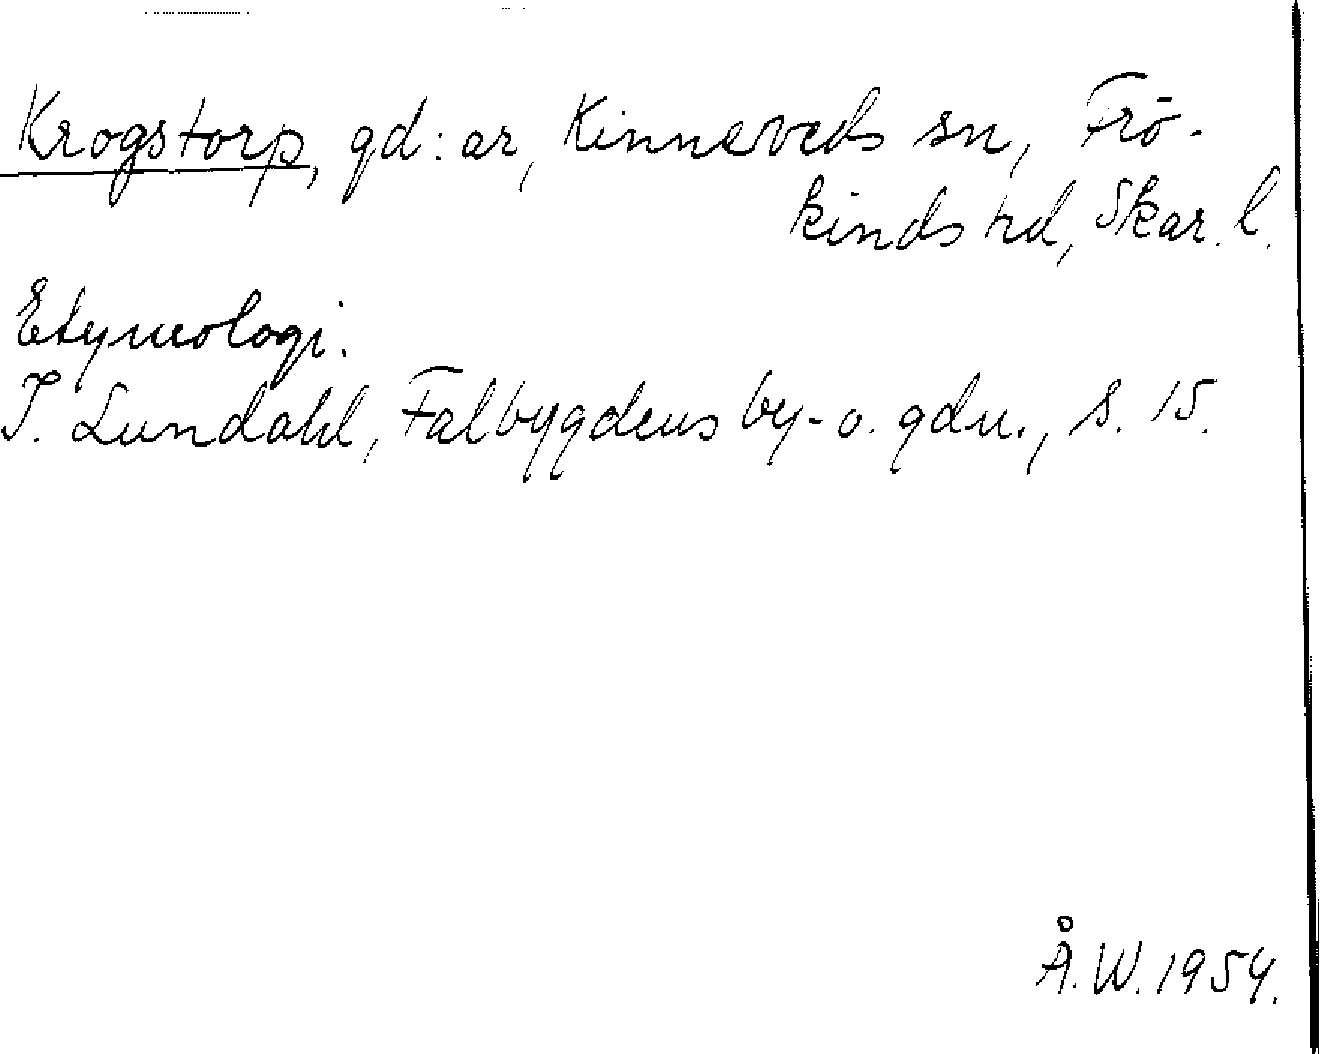 Krogstorp, gd:ar, Kinneveds sn, Frö-
kinds hd, Skar. l.
Etymologi.
I. Lundahl, Falbygdens by- o. gdn., s. 15.
Å.W. 1954.